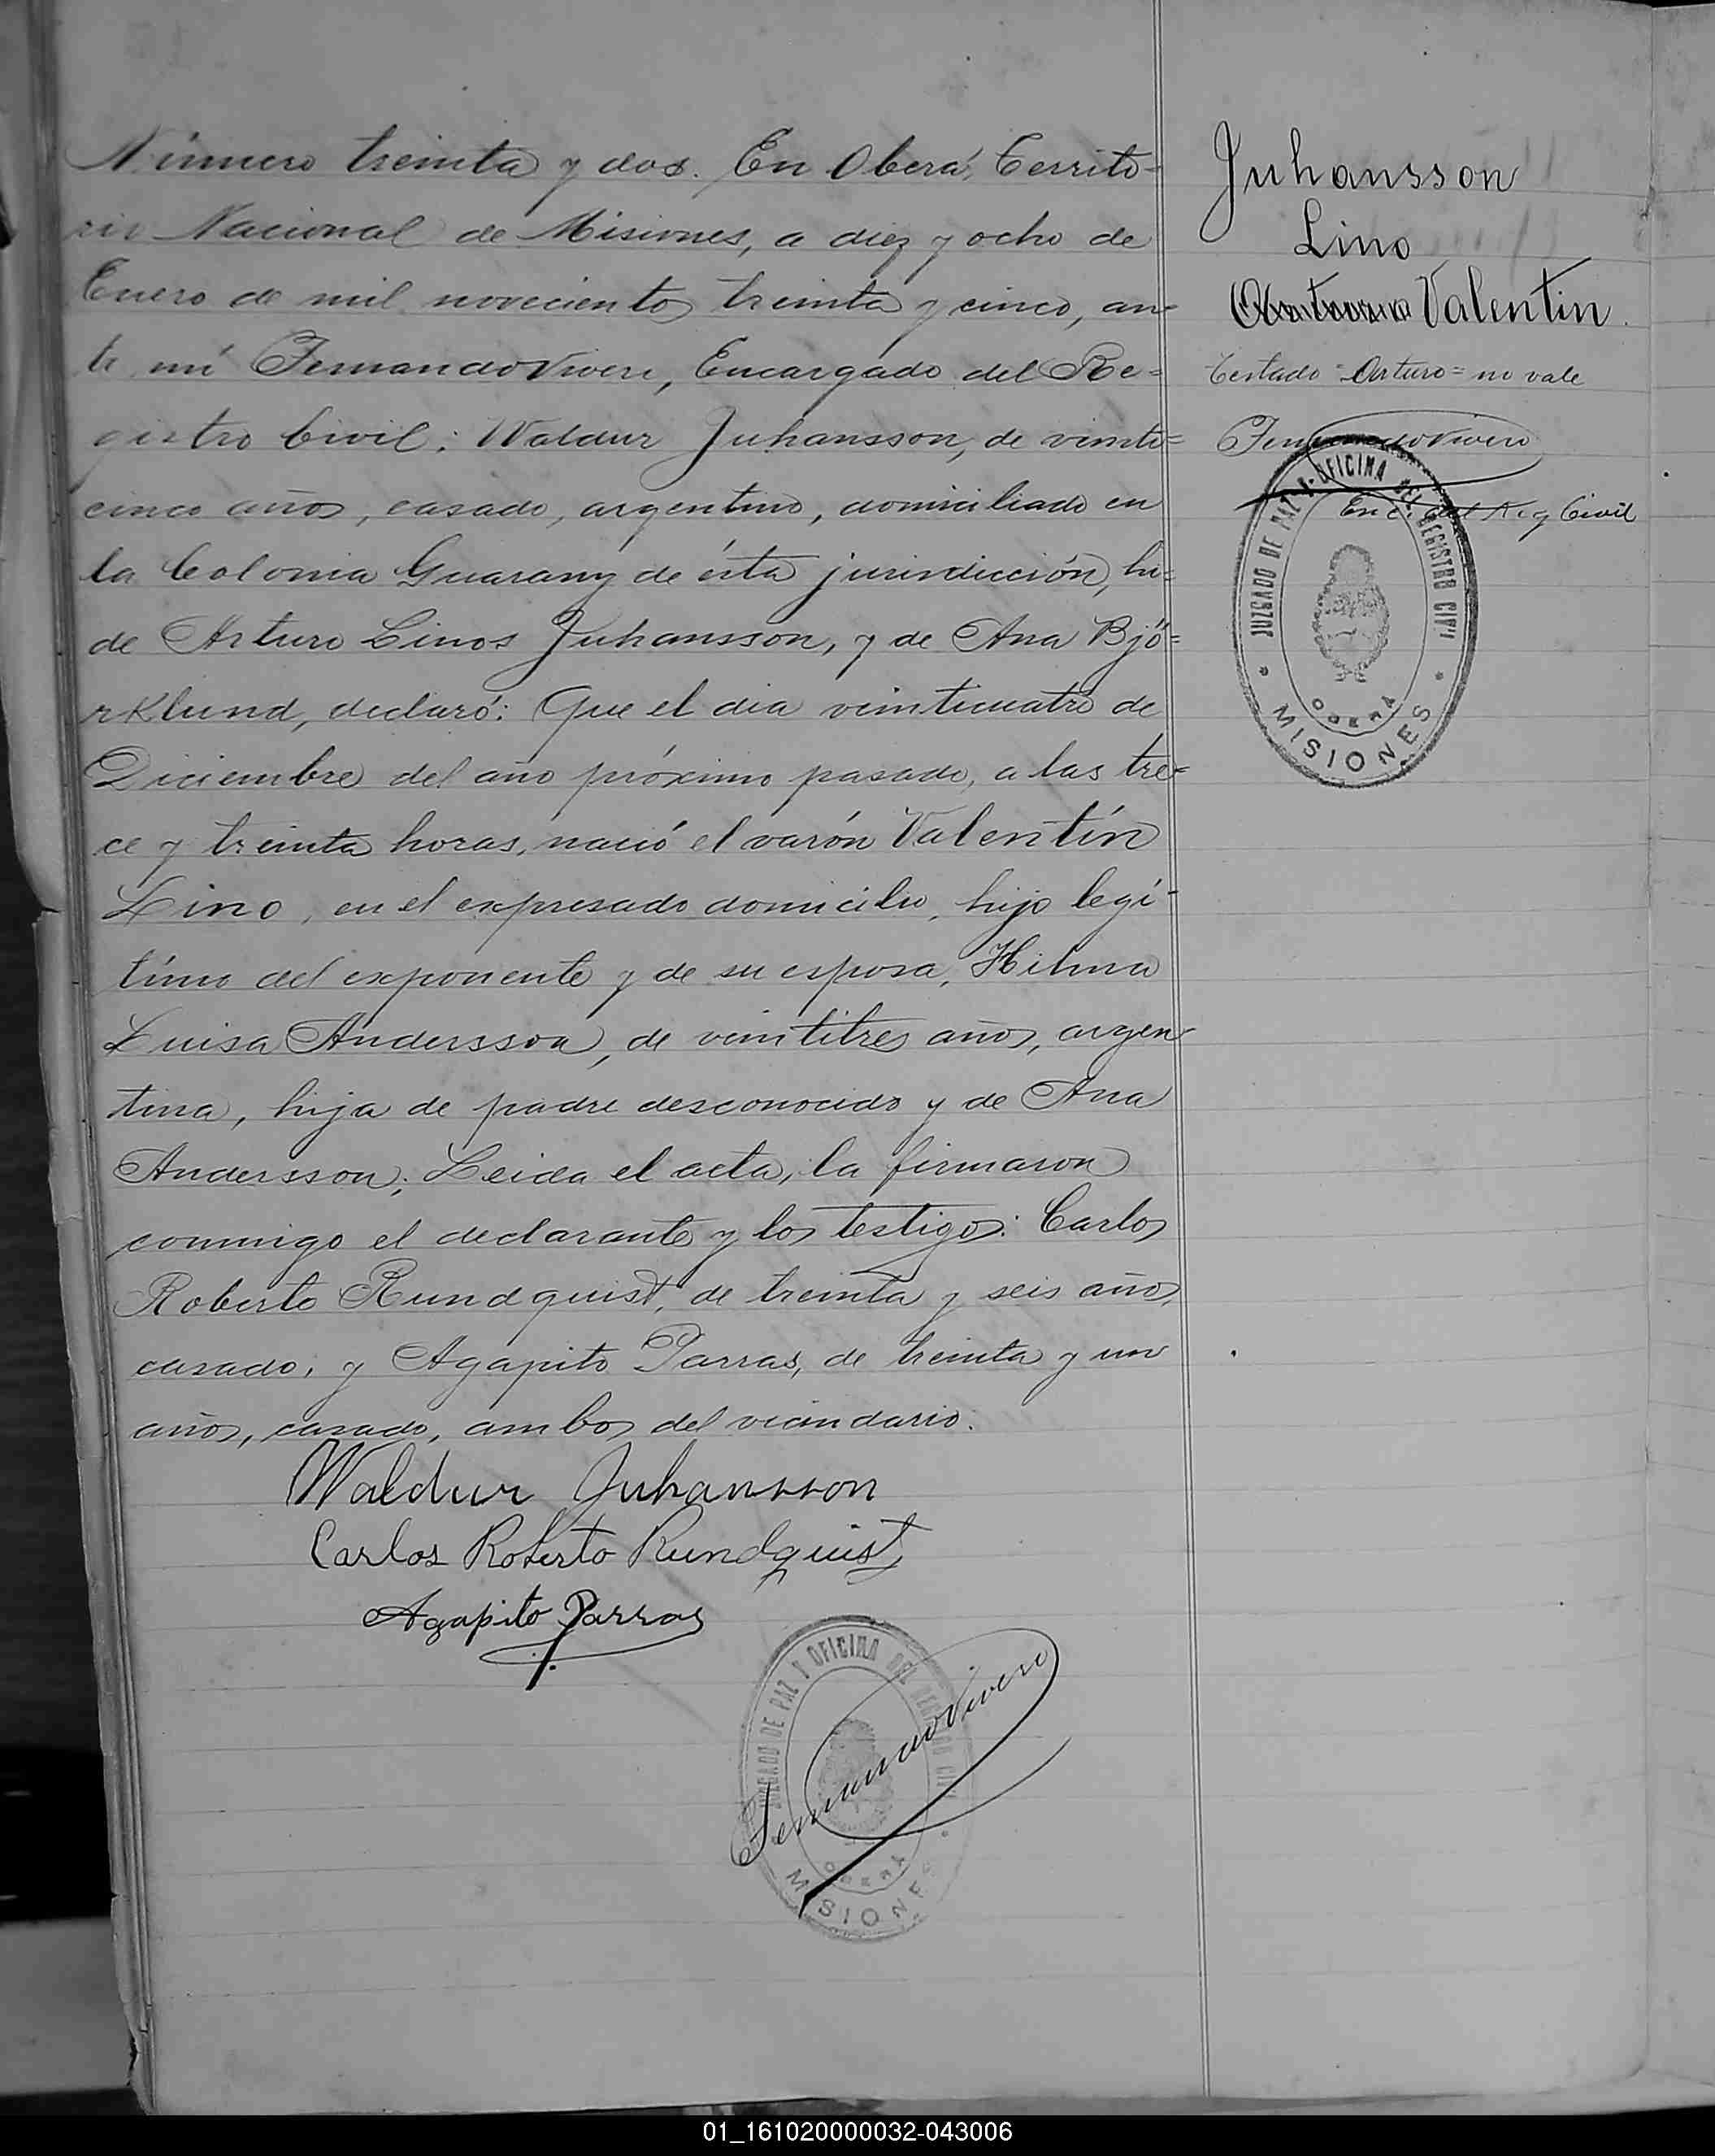 Número treinta y dos. En Oberá, Territo-
rio Nacional de Misiones, a diez y ocho de
Enero de mil novecientos treinta y cinco, an-
te mí Fernando Vivero, Encargado del Re=
gistro Civil: Waldur Juhansson, de veinti=
cinco años, casado, argentino, domiciliado en
la Colonia Guarany de ésta jurisdicción, hi=
de Arturo Linos Juhansson, y de Ana Bjö=
rklund, declaró: Que el dia veinticuatro de
Diciembre del año próximo pasado, a las tre=
ce y treinta horas, nació el varón Valentín
Lino, en el expresado domicilio, hijo legí-
timo del exponente y de su esposa, Hilma
Luisa Andersson, de veintitres años, argen
tina, hija de padre desconocido y de Ana
Andersson; Leida el acta, la firmaron
conmigo el declarante y los testigos: Carlos
Roberto Rundquist, de treinta y seis años,
casado, y Agapito Parras, de treinta y un
años, casado, ambos del vecindario.
Waldur Juhansson
Carlos Roberto Rundquist
Agapito Parras
Fernando Vivero
JUZGADO DE PAZ Y OFICINA DEL REGISTRO CIVIL
OBERA
MISIONES
Juhansson
Lino
Valentin.
Testado "Arturo" = no vale
Fernando Vivero
Enc. del Reg Civil
JUZGADO DE PAZ Y OFICINA DEL REGISTRO CIVIL
OBERA
MISIONES
01_161020000032-043006